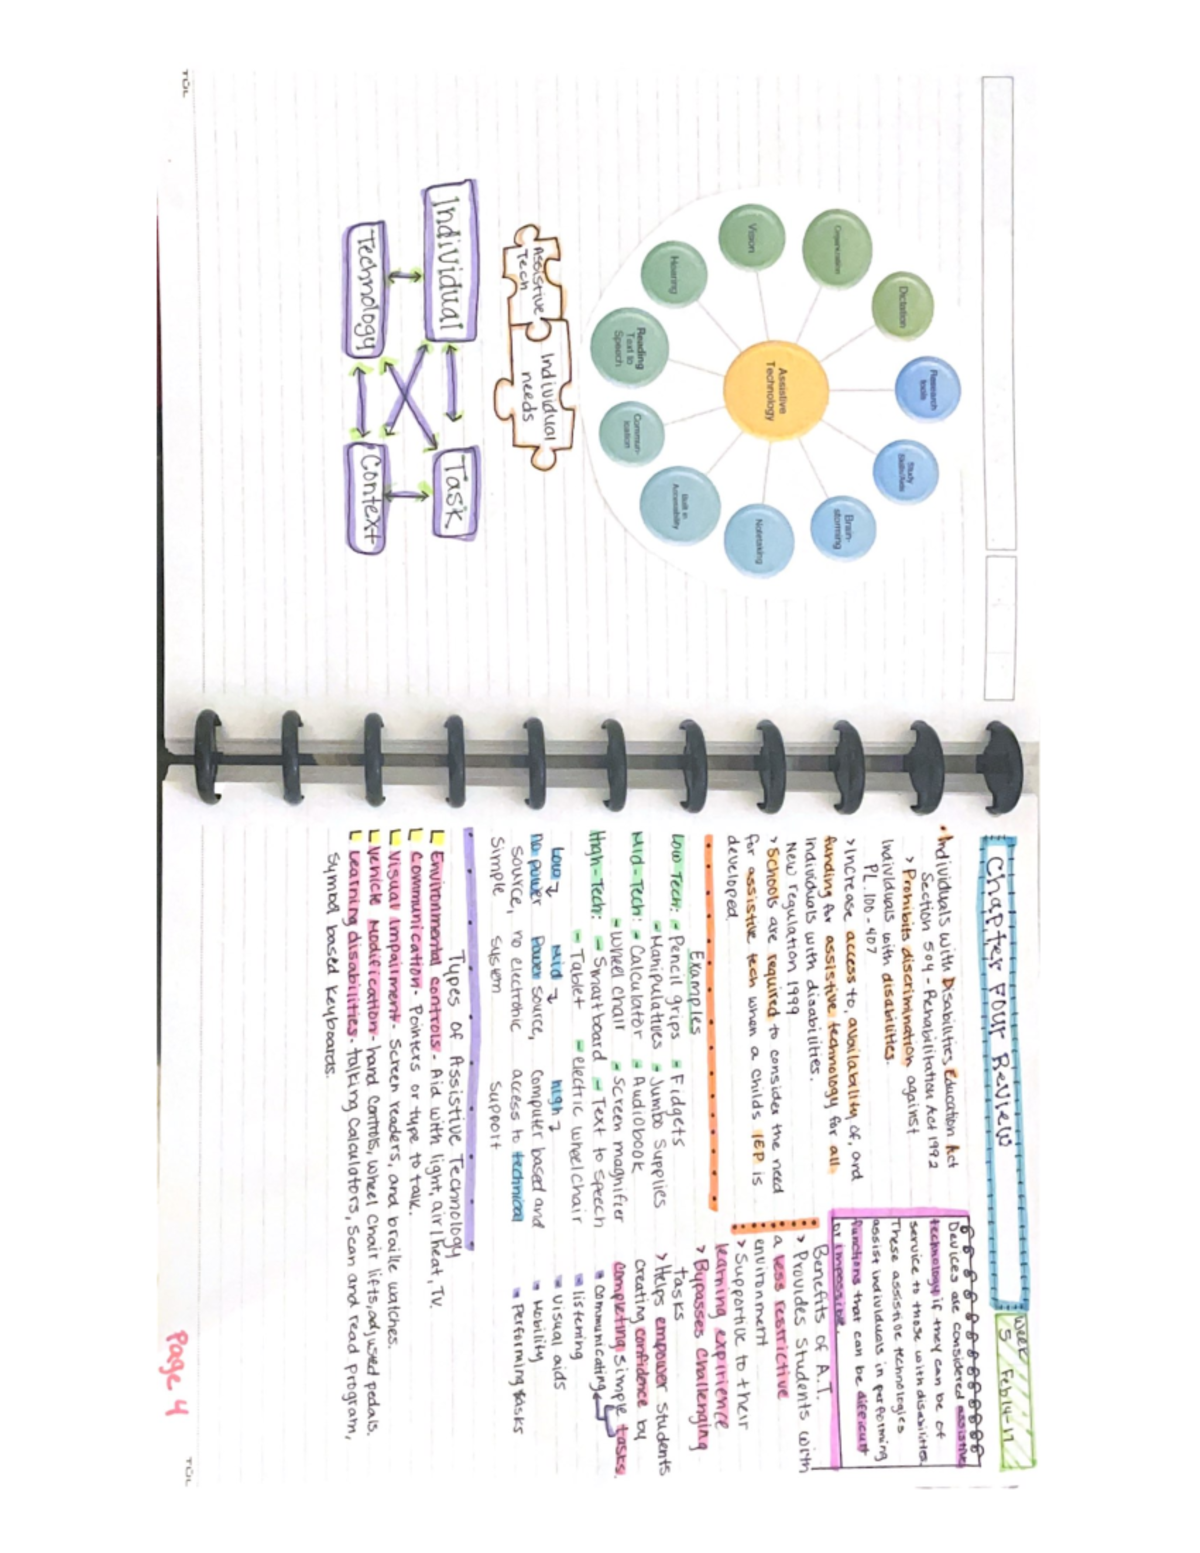 Organization
Dictation
Research tools
Study Skills/Aids
Brain-
storming
Notetaking
Built in
Accessibility
Commun-
ication
Reading
Text to
Speech
Hearing
Vision
Assistive
Technology
Assistive
Tech
Individual
needs
Individual
Task
Technology
Context
TUL
Chapter Four Review
Week
5 Feb 14-17
• Individuals with Disabilities Education Act
Section 504 - Rehabilitation Act 1992
> Prohibits discrimination against
individuals with disabilities.
PL. 100-407
> Increase access to, availability of, and
funding for assistive technology for all
individuals with disabilities.
New regulation 1999
> Schools are required to consider the need
for assistive tech when a childs IEP is
developed.
Devices are considered assistive
technology if they can be of
service to those with disabilities
These assistive technologies
assist individuals in performing
functions that can be difficult
or impossible.
Benefits of A.T.
> Provides students with
a less restrictive
environment
> Supportive to their
learning expirience
> Bypasses challenging
tasks
> Helps empower students
creating confidence by
completing simple tasks.
communicating
listening
visual aids
Mobility
Performing tasks
Examples
Low Tech: - Pencil grips - Fidgets
- Manipulatives - Jumbo Supplies
Mid-Tech: - Calculator - Audiobook
- Wheel chair - Screen magnifier
High-Tech: - Smartboard - Text to speech
- Tablet - electric wheelchair
Low Mid high
no power Power source, Computer based and
source, no electronic access to technical
simple system support
Types of Assistive Technology
Environmental controls - Aid with light, air/heat, TV.
Communication - Pointers or type to talk.
Visual impairment - Screen readers, and braille watches.
Vehicle Modification - hand controls, wheel chair lifts, adjusted pedals.
Learning disabilities - talking calculators, scan and read program,
symbol based keyboards.
Page 4
TUL